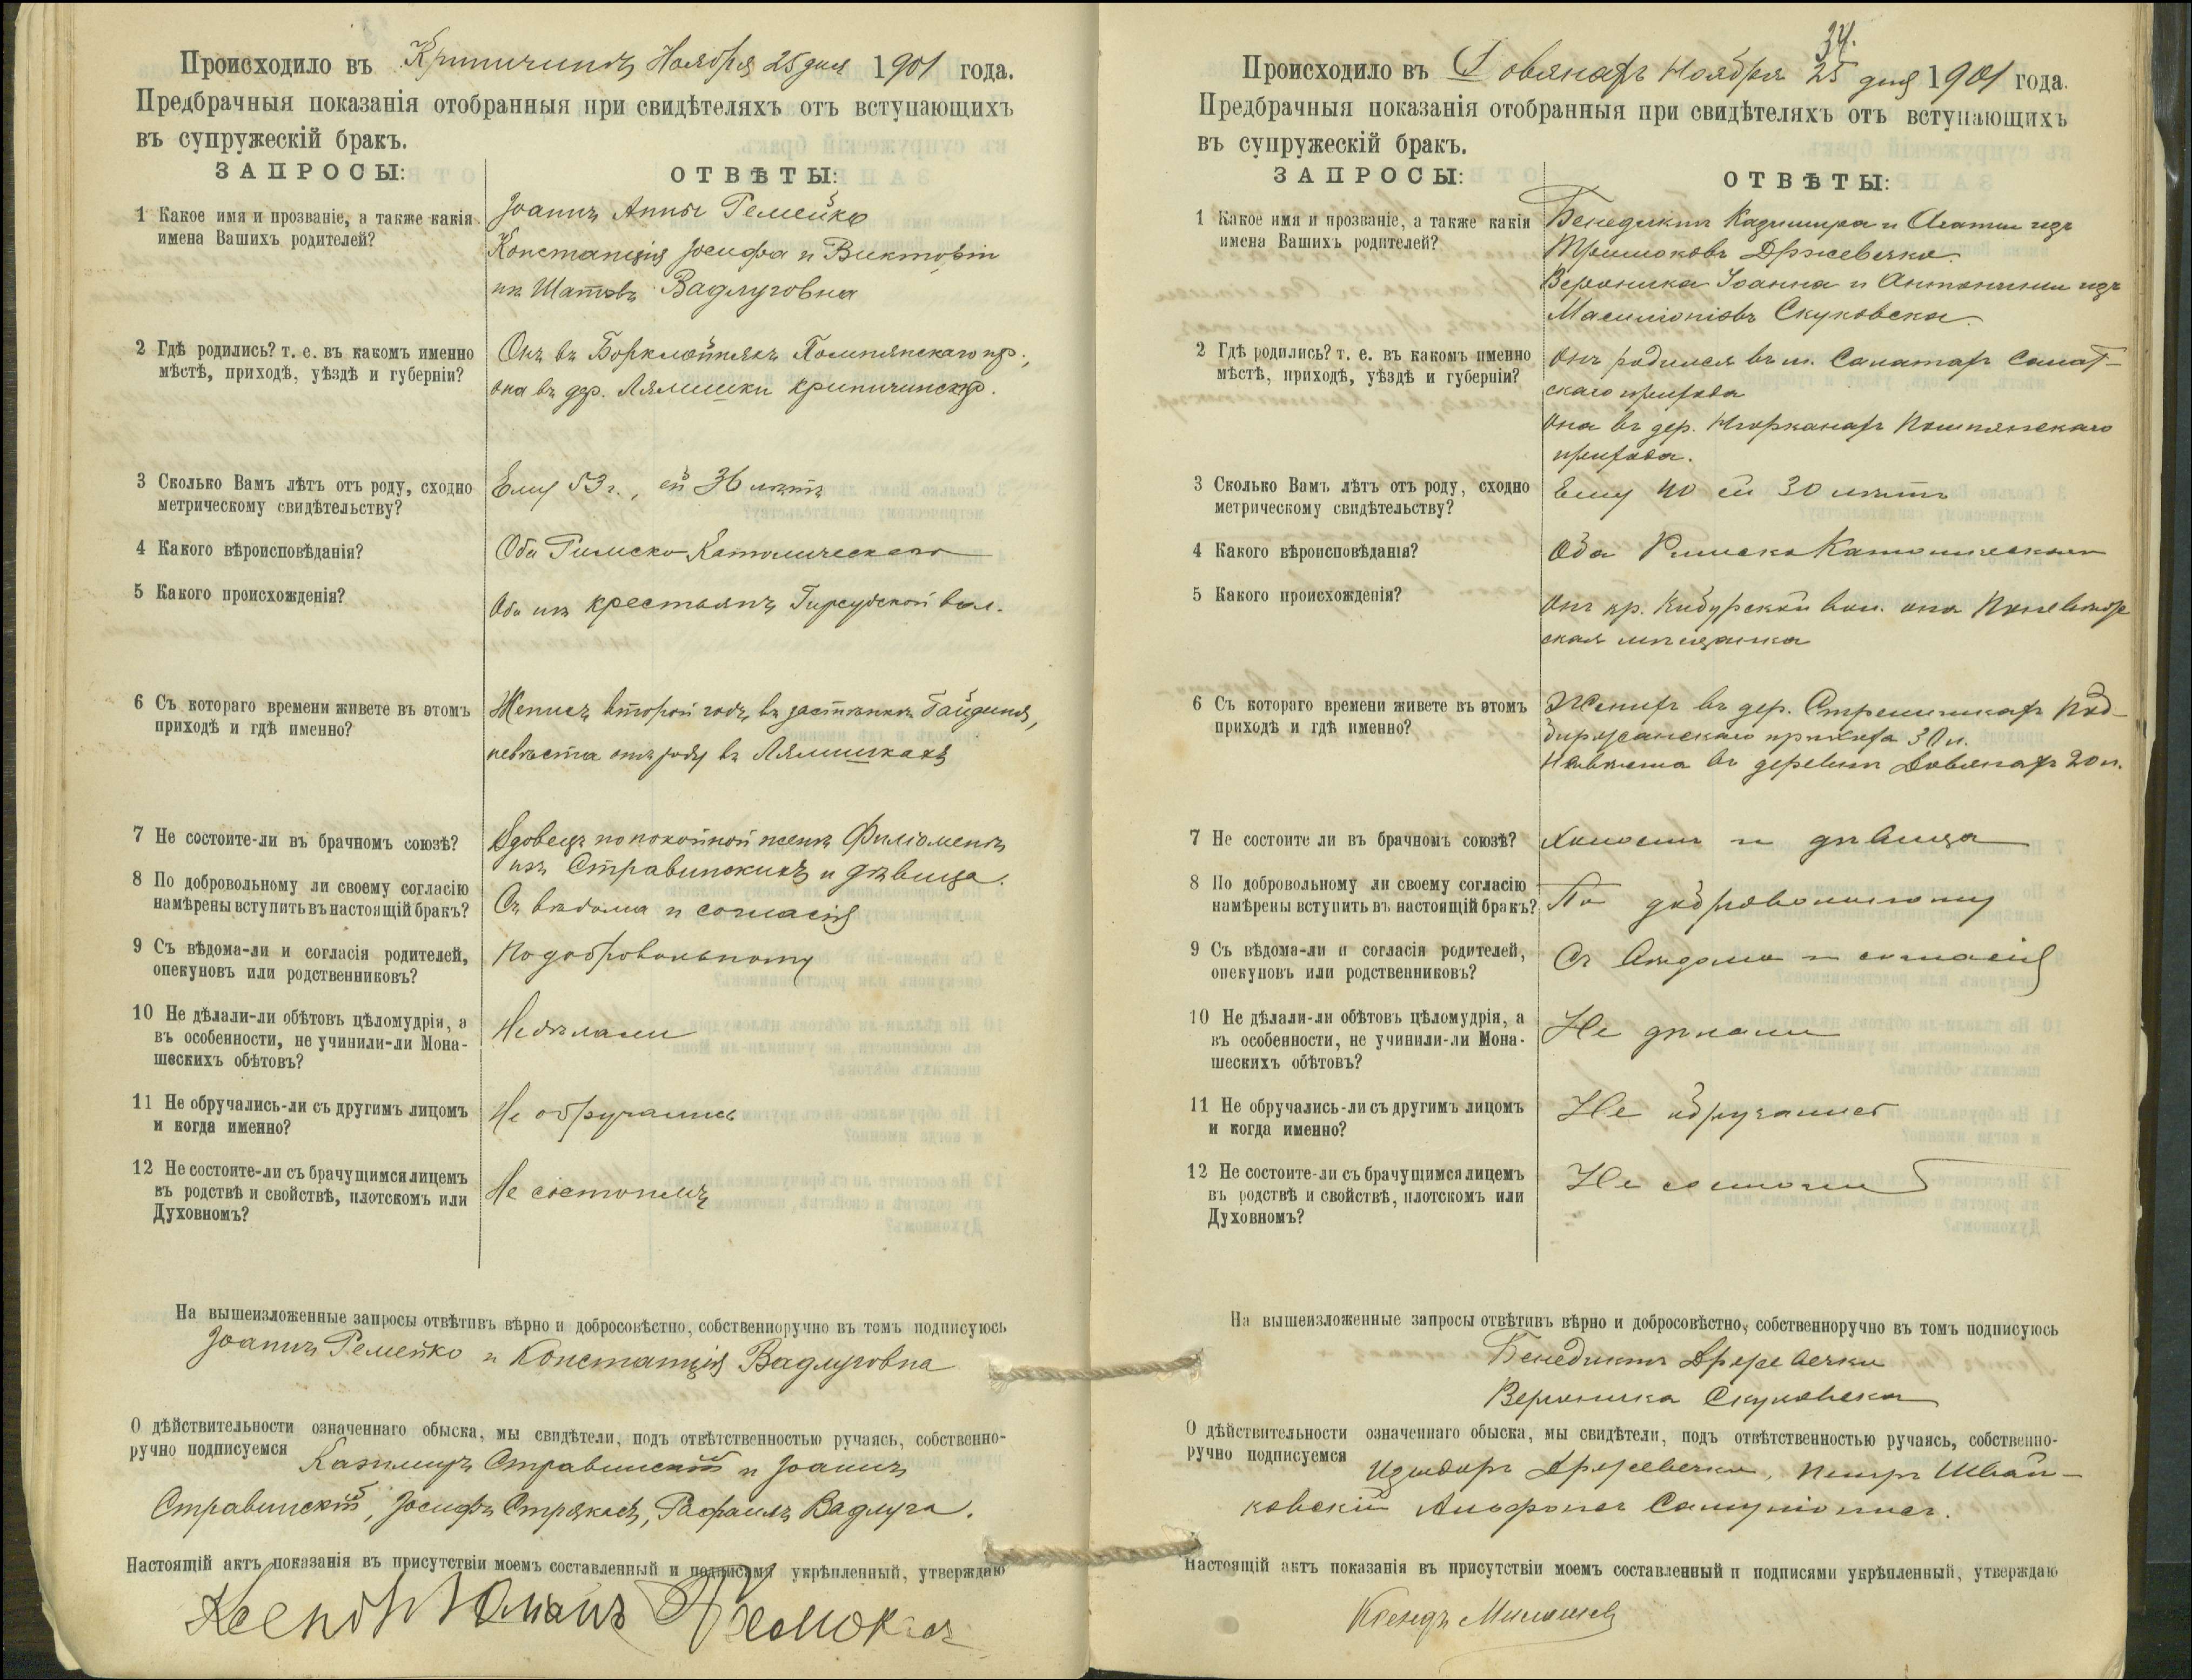 Происходило въ Криничинѣ Ноября 25 дня 1901 года.
Предбрачныя показанія отобранныя при свидѣтеляхъ отъ вступающихъ
въ супружескій бракъ.
ЗАПРОСЫ:
ОТВѢТЫ:
1 Какое имя и прозваніе, а также какія
имена Вашихъ родителей?
Іоаннъ Анны Ремейко
Констанція Іосифа и Викторіи
изъ Шатовъ Вадлуговна
2 Гдѣ родились? т. е. въ какомъ именно
мѣстѣ, приходѣ, уѣздѣ и губерніи?
Онъ въ Поmпянскаго пр.,
она въ дер. Лялишки Криничинск. пр.
3 Сколько Вамъ лѣтъ отъ роду, сходно
метрическому свидѣтельству?
Ему 53 г., ей 36 лѣтъ
4 Какого вѣроисповѣданія?
Оба Римско-Католическаго
5 Какого происхожденія?
Оба изъ крестьянъ Гирсудской вол.
6 Съ котораго времени живете въ этомъ
приходѣ и гдѣ именно?
Женихъ второй годъ въ застѣнкѣ
невѣста отъ роду въ Лялишкахъ
7 Не состоите-ли въ брачномъ союзѣ?
Вдовецъ по покойной женѣ Филіоменѣ
изъ Стравинскихъ и дѣвица.
8 По добровольному ли своему согласію
намѣрены вступить въ настоящій бракъ?
Съ вѣдома и согласія
9 Съ вѣдома-ли и согласія родителей,
опекуновъ или родственниковъ?
По добровольному
10 Не дѣлали-ли обѣтовъ цѣломудрія, а
въ особенности, не учинили-ли Мона-
шескихъ обѣтовъ?
Не дѣлали
11 Не обручались-ли съ другимъ лицомъ
и когда именно?
Не обручались
12 Не состоите-ли съ брачущимся лицемъ
въ родствѣ и свойствѣ, плотскомъ или
Духовномъ?
Не состоимъ
На вышеизложенные запросы отвѣтивъ вѣрно и добросовѣстно, собственноручно въ томъ подписуюсь
Іоаннъ Ремейко и Констанція Вадлуговна
О дѣйствительности означеннаго обыска, мы свидѣтели, подъ отвѣтственностью ручаясь, собственно-
ручно подписуемся Казимиръ Стравинскій и Іоаннъ
Стравинскій, Іосифъ Рафаилъ Вадлуга.
Настоящій актъ показанія въ присутствіи моемъ составленный и подписями укрѣпленный, утверждаю
34.
Происходило въ Довянахъ Ноября 25 дня 1901 года.
Предбрачныя показанія отобранныя при свидѣтеляхъ отъ вступающихъ
въ супружескій бракъ.
ЗАПРОСЫ:
ОТВѢТЫ:
1 Какое имя и прозваніе, а также какія
имена Вашихъ родителей?
Бенедиктъ Казимира и Агаты изъ
Држевечко.
Вероника Іоанна и Антонины изъ
Скуковска.
2 Гдѣ родились? т. е. въ какомъ именно
мѣстѣ, приходѣ, уѣздѣ и губерніи?
Онъ родился въ м. Салатахъ Салат-
скаго прихода
Она въ дер. Помпянскаго
прихода.
3 Сколько Вамъ лѣтъ отъ роду, сходно
метрическому свидѣтельству?
Ему 40 ей 30 лѣтъ
4 Какого вѣроисповѣданія?
Оба Римско Католическаго
5 Какого происхожденія?
Онъ кр. Кибурской вол. она Поневѣж
ская мѣщанка
6 Съ котораго времени живете въ этомъ
приходѣ и гдѣ именно?
Женихъ въ дер. Под-
биржанскаго прихода 30 л.
Невѣста въ деревнѣ Довянахъ 20 л.
7 Не состоите ли въ брачномъ союзѣ?
Холостъ и дѣвица
8 По добровольному ли своему согласію
намѣрены вступить въ настоящій бракъ?
По добровольному
9 Съ вѣдома-ли и согласія родителей,
опекуновъ или родственниковъ?
Съ вѣдома и согласія
10 Не дѣлали-ли обѣтовъ цѣломудрія, а
въ особенности, не учинили-ли Мона-
шескихъ обѣтовъ?
Не дѣлали
11 Не обручались-ли съ другимъ лицомъ
и когда именно?
Не обручались
12 Не состоите-ли съ брачущимся лицемъ
въ родствѣ и свойствѣ, плотскомъ или
Духовномъ?
Не состоимъ
На вышеизложенные запросы отвѣтивъ вѣрно и добросовѣстно, собственноручно въ томъ подписуюсь
Бенедиктъ Држевечко
Вероника Скуковска
О дѣйствительности означеннаго обыска, мы свидѣтели, подъ отвѣтственностью ручаясь, собственно-
ручно подписуемся Изидоръ Држевечко, Петръ Швай-
ковскій Альфонсъ
Настоящій актъ показанія въ присутствіи моемъ составленный и подписями укрѣпленный, утверждаю
Ксендзъ